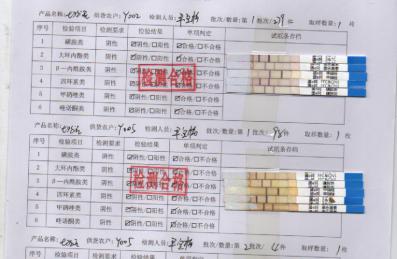 产品名称: 供货农户: Y002 检测人员: 批次/数量: 第1批次/ 件 取样数量: 1枚
序号 检验项目 检验要求 检验结果 单项判定 试纸条存档
1 磺胺类 阴性 ☑阴性/□阳性 ☑合格/□不合格
2 大环内酯类 阴性 ☑阴性/□阳性 ☑合格/□不合格
3 β一内酰胺类 阴性 ☑阴性/□阳性 ☑合格/□不合格
4 四环素类 阴性 ☑阴性/□阳性 ☑合格/□不合格
5 甲硝唑类 阴性 ☑阴性/□阳性 ☑合格/□不合格
6 喹诺酮类 阴性 ☑阴性/□阳性 ☑合格/□不合格
检测合格
产品名称: 供货农户: Y005 检测人员: 批次/数量: 第1批次/ 98件 取样数量: 1枚
序号 检验项目 检验要求 检验结果 单项判定 试纸条存档
1 磺胺类 阴性 ☑阴性/□阳性 ☑合格/□不合格
2 大环内酯类 阴性 ☑阴性/□阳性 ☑合格/□不合格
3 β一内酰胺类 阴性 ☑阴性/□阳性 ☑合格/□不合格
4 四环素类 阴性 ☑阴性/□阳性 ☑合格/□不合格
5 甲硝唑类 阴性 ☑阴性/□阳性 ☑合格/□不合格
6 喹诺酮类 阴性 ☑阴性/□阳性 ☑合格/□不合格
检测合格
产品名称: 供货农户: Y005 检测人员: 批次/数量: 第2批次 件 取样数量: 1枚
序号 检验项目 检验要求 检验结果 单项判定 试纸条存档